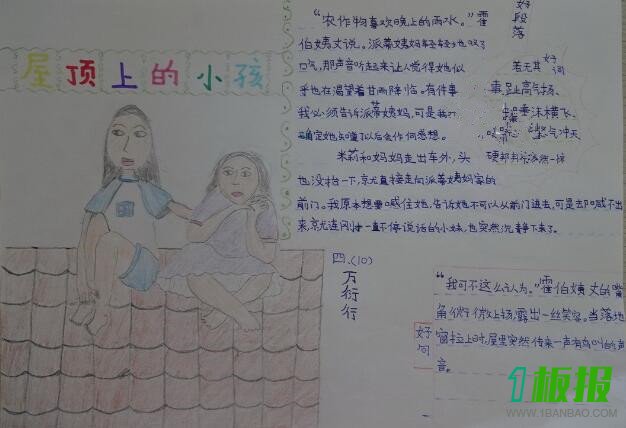 屋顶上的小孩
好段落
“农作物喜欢晚上的雨水。”霍
伯姨丈说。派蒂姨妈轻轻地叹了
口气，那声音听起来让人觉得她似
乎也在渴望着甘雨降临。有件事
我必须告诉派蒂姨妈，可是我
确定她知道了以后会作何感想。
米莉和妈妈走出车外，头
也没抬一下，就直接走向派蒂姨妈家的
前门。我原本想要喊住她，告诉她不可以从前门进去，可是却喊不出
来，就连问 一直不停说话的小妹，也突然沉静下来了。
好词
若无其
事 趾高气扬、
唾沫横飞、
怒气冲天
四.(10)
万衍行
好句
“我可不这么认为。”霍伯姨丈的嘴
角微微上扬，露出一丝笑容。当落地
窗拉上时，屋里突然传来一声有 叫的声
音。
1板报
WWW.1BANBAO.COM